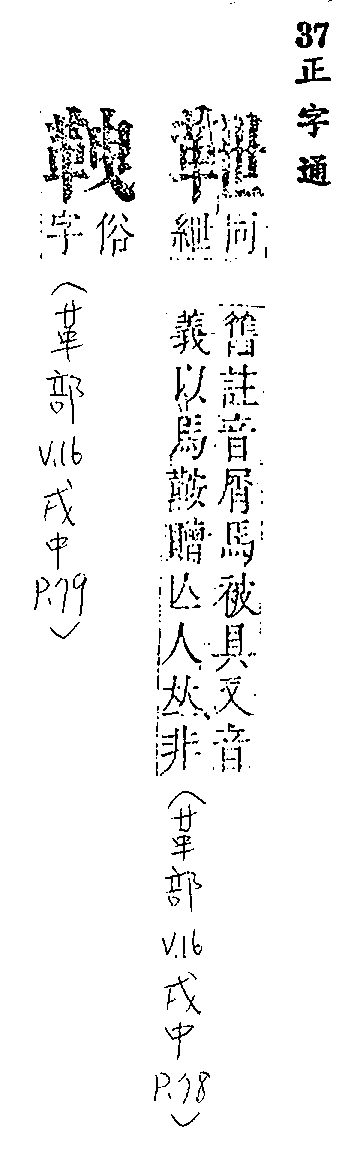 37正字通
同紲
舊註音屑馬被具又音
義以馬鞍贈亾人𠀤非
(革部 V.16 戌中 P.78)
靾
俗字
(革部 V.16 戌中 P.79)